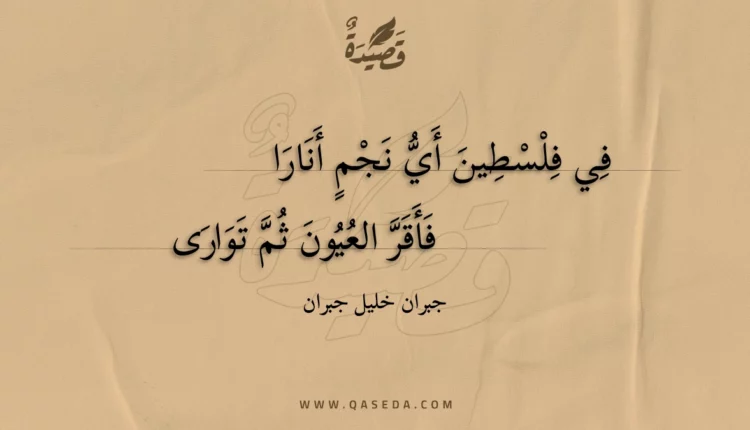 قَصِيْدَةٌ
فِي فِلْسْطِينَ أَيُّ نَجْمٍ أَنَارَا
فَأَقَرَّ العُيُونَ ثُمَّ تَوَارَى
جبران خليل جبران
WWW.QASEDA.COM